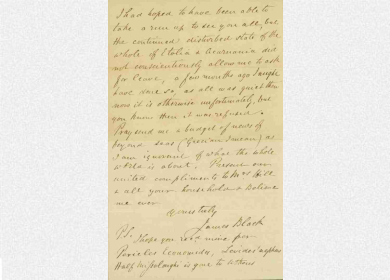 I had hoped to have been able to
take a run up to see you all, but
the continued disturbed state of the
whole of Etolia & Acarnania did
not conscientiously allow me to ask
for leave, a few months ago I might
have done so, as all was quiet then
now it is otherwise unfortunately, but
you know then it was refused.
Pray send me a budget of news of
beyond seas (Grecian) as
I am ignorant of what the whole
world is about. Present our
united compliments to Mrs Hill
& all your household & believe
me ever
Yours truly
James Black
P.S. I hope you recd mine per
Pericles Economides,
Half Missolonghi is gone to Athens